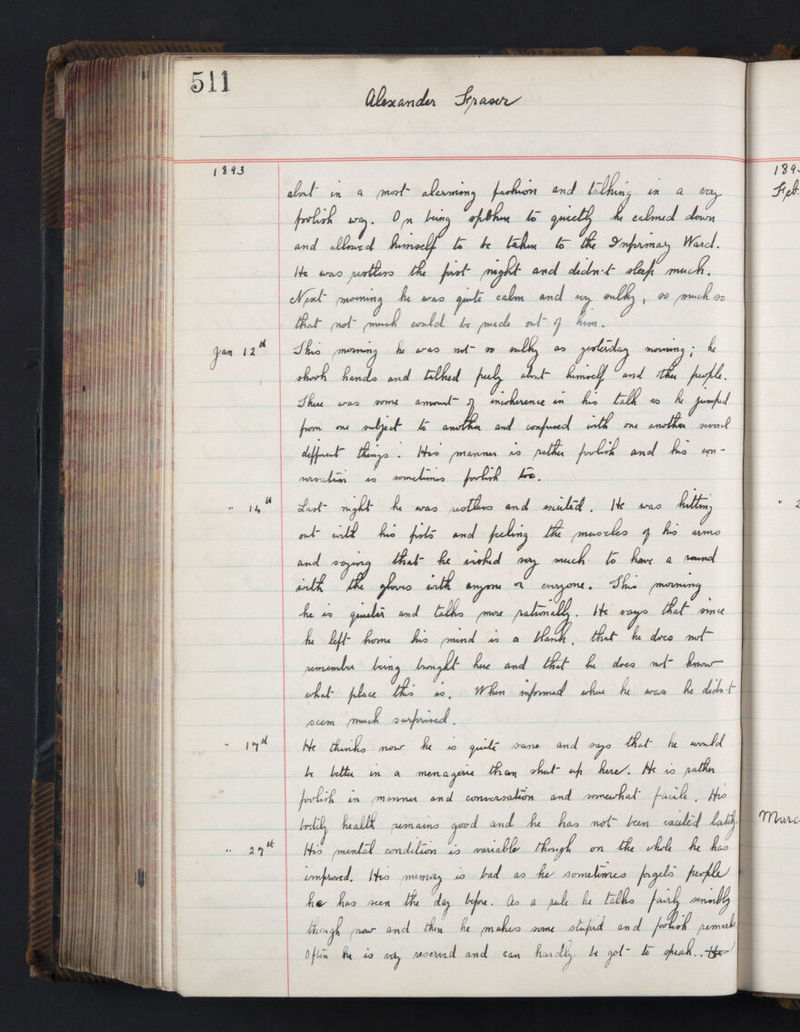 511
Alexander Fraser
1893
about in a most alarming fashion and talking in a very
foolish way. On being spoken to quietly he calmed down
and allowed himself to be taken to the Infirmary Ward.
He was restless the first night and didn't sleep much.
Next morning he was quite calm and very sulky, so much so
that not much could be made out of him.
Jan 12th This morning he was not so sulky as yesterday morning; he
shook hands and talked freely about himself and other people.
There was some amount of incoherence in his talk as he jumped
from one subject to another and confused with one another several
different things. His manner is rather foolish and his con-
versation is sometimes foolish too.
" 14th Last night he was restless and excited. He was hitting
out with his fists and feeling the muscles of his arms
and saying that he wished very much to have a round
with the gloves with anyone or everyone. This morning
he is quieter and talks more rationally. He says that since
he left home his mind is a blank, that he does not
remember being brought here and that he does not know
what place this is. When informed where he was he didn't
seem much surprised.
" 17th He thinks now he is quite sane and says that he would
be better in a menagerie than shut up here. He is rather
foolish in manner and conversation and somewhat facile. His
bodily health remains good and he has not been excited lately
" 27th His mental condition is variable though on the whole he has
improved. His memory is bad as he sometimes forgets people
he has seen the day before. As a rule he talks fairly sensibly
though now and then he makes some stupid and foolish remark
Often he is very reserved and can hardly be got to speak.. He
189
Feb
" 2
Marc